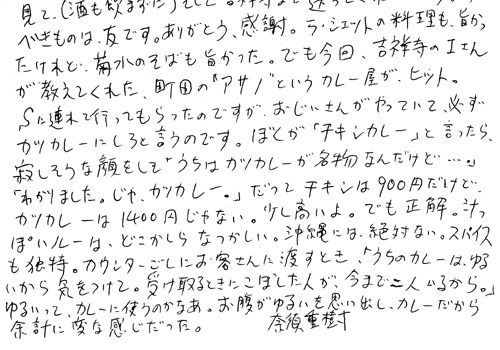 見て、(酒も飲まずに)そして
べきものは、友です。ありがとう、感謝。ラ・シェットの料理も、旨かっ
たけれど、菊水のそばも旨かった。でも今回、吉祥寺のIさん
が教えてくれた、町田の"アサノ"というカレー屋が、ヒット。
Sに連れて行ってもらったのですが、おじいさんがやっていて、必ず
カツカレーにしろと言うのです。ぼくが「チキンカレー」と言ったら、
寂しそうな顔をして「うちはカツカレーが名物なんだけど……。」
「わかりました。じゃ、カツカレー。」だってチキンは900円だけど、
カツカレーは1400円じゃない。少し高いよ。でも正解。汁っ
ぽいルーは、どこかしらなつかしい。沖縄には、絶対ない。スパイス
も独特。カウンターごしにお客さんに渡すとき、「うちのカレーは、ゆる
いから気をつけて。受け取るときにこぼした人が、今まで二人いるから。」
ゆるいって、カレーに使うのかなあ。お腹がゆるいを思い出し、カレーだから
余計に変な感じだった。 奈須重樹